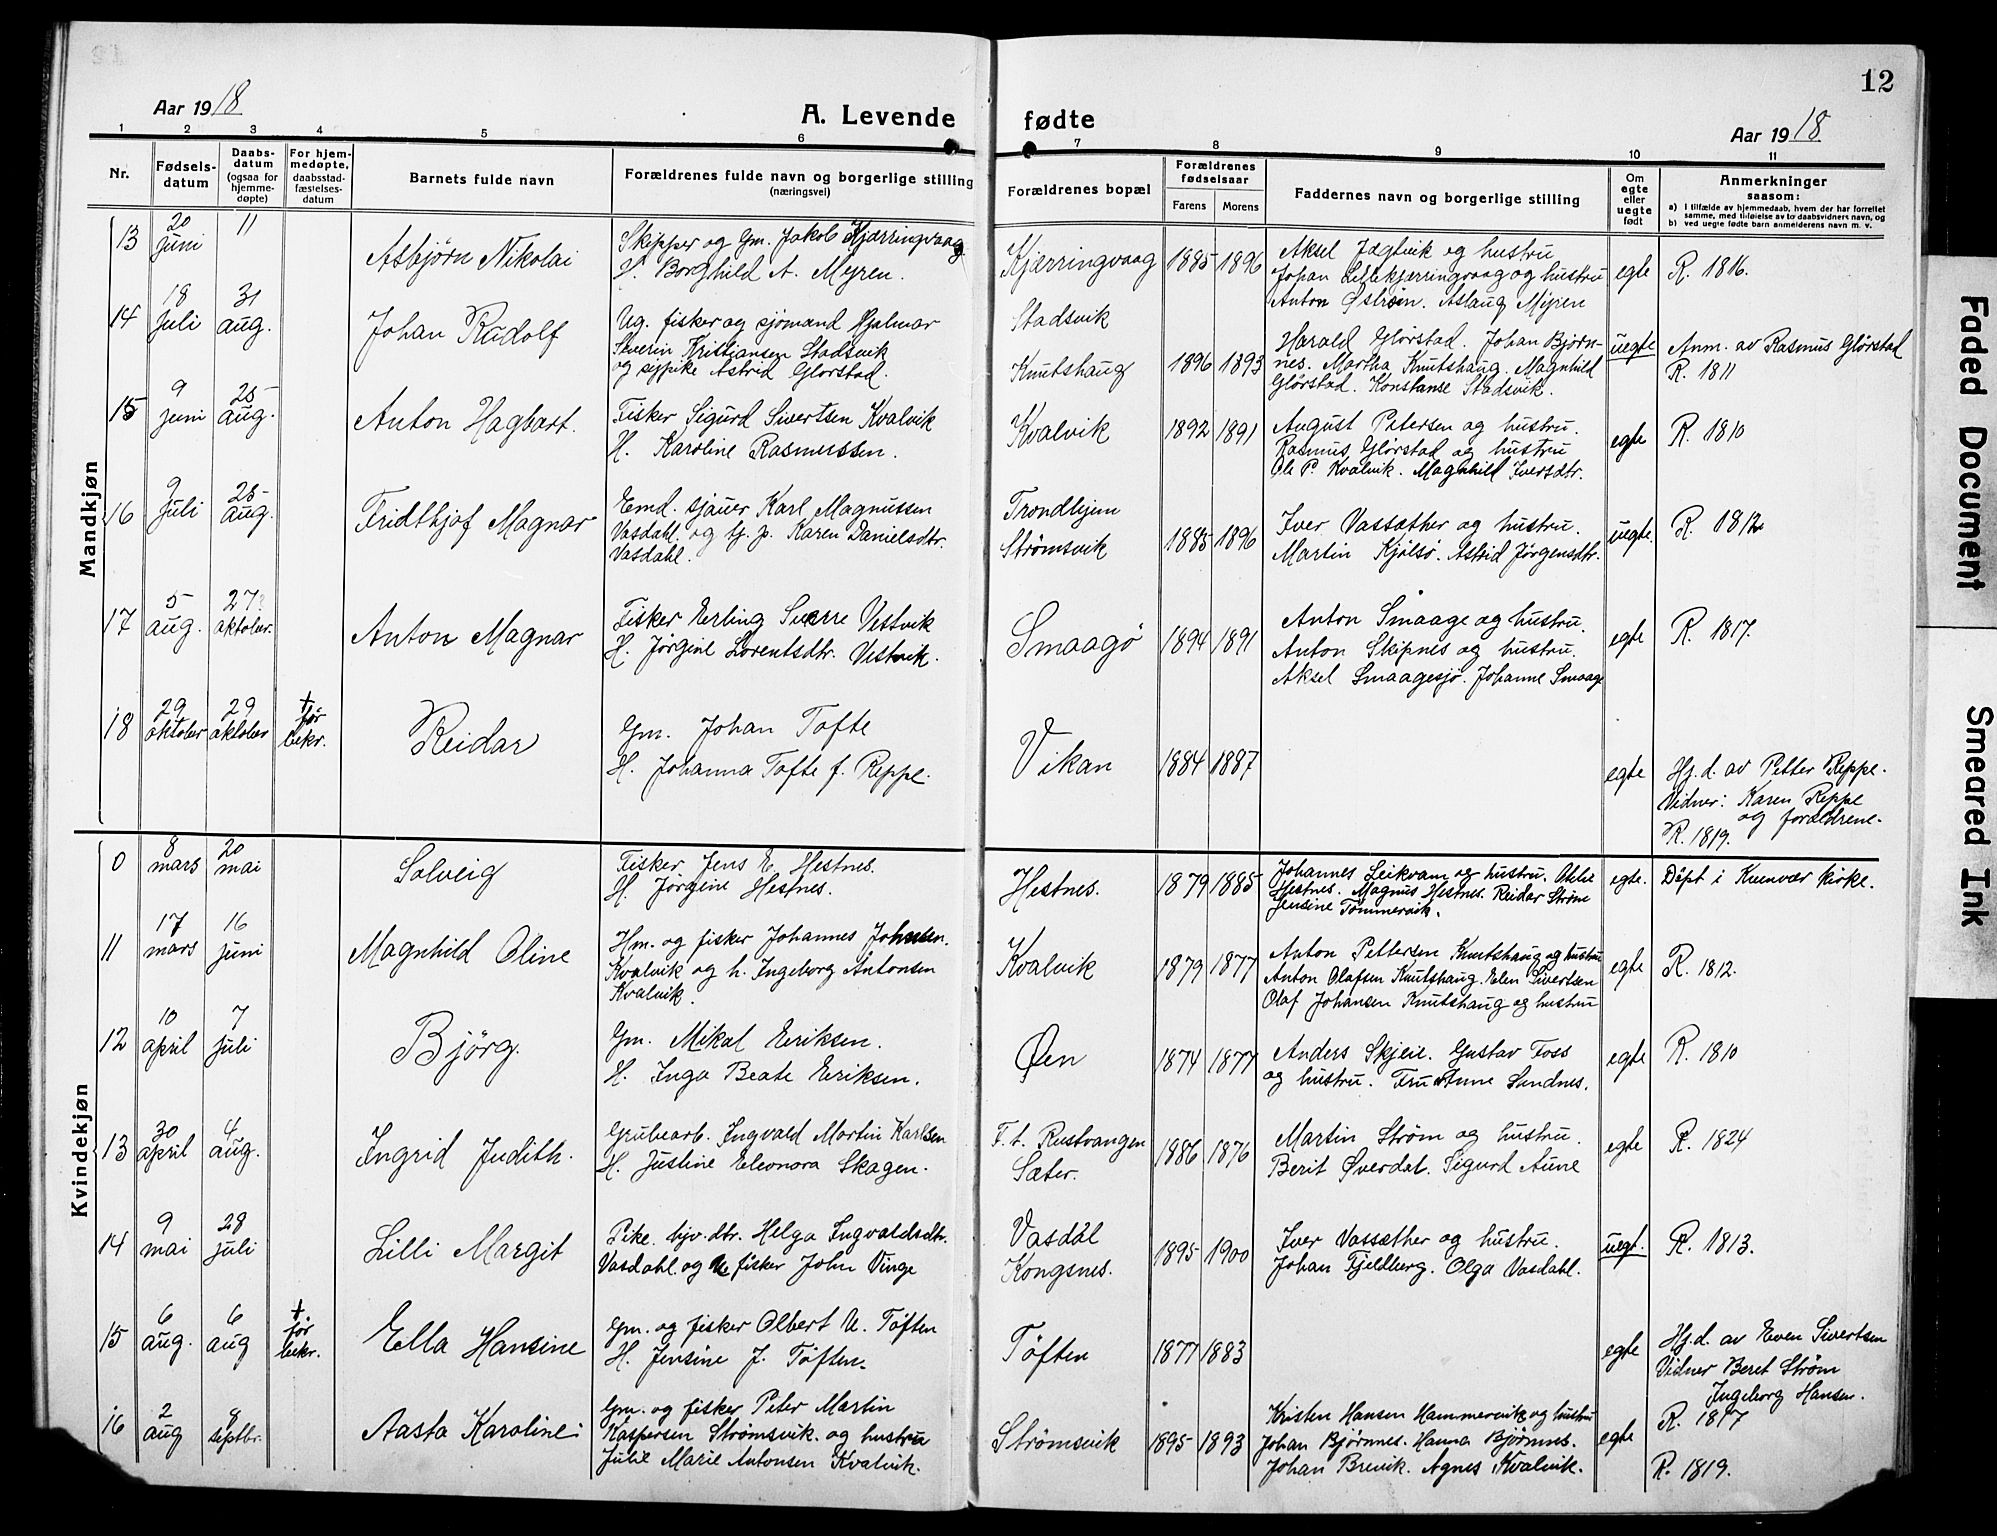 12
Aar 1918
A. Levende fødte
Aar 1918
1 2 3 4 5 6 7 8 9 10 11
Nr.
Fødselsdatum
Daabsdatum (ogsaa for hjemmedøpte)
For hjemmedøpte, daabsstadfæstelsesdatum
Barnets fulde navn
Forældrenes fulde navn og borgerlige stilling (næringsvei)
Forældrenes bopæl
Forældrenes fødselsaar
Farens Morens
Faddernes navn og borgerlige stilling
Om egte eller uegte født
Anmerkninger saasom:
a) I tilfælde av hjemmedaab, hvem der har forrettet samme, med tilføielse av to daabsvidners navn, og
b) ved uegte fødte barn anmelderens navn m. v.
Mandkjøn
13
20 juni
11
Asbjørn Nikolai
Skipper og Gm. Jakob Kjærringvaag
H. Borghild A. Myren.
Kjærringvaag
1885 1896
Aksel Jægtvik og hustru
Johan Lillekjærringvaag og hustru
Anton Østrøm. Aslaug Myren
egte
R. 1816.
14
18 juli
31 aug.
Johan Rudolf
Ug. fisker og sjømand Hjalmar
Severin Kristiansen Stadsvik
og sypike Astrid Glørstad.
Stadsvik
Knutshaug
1896 1893
Harald Glørstad. Johan Bjørn-
nes. Martha Knutshaug. Magnhild
Glørstad. Konstanse Stadsvik.
uegte
Anm. av Rasmus Glørstad
R. 1811
15
9 juni
25 aug.
Anton Hagbart.
Fisker Sigurd Sivertsen Kvalvik
H. Karoline Rasmussen.
Kvalvik
1892 1891
August Petersen og hustru.
Rasmus Glørstad og hustru
Ole P. Kvalvik. Magnhild Iversdtr.
egte
R. 1810
16
9 juli
25 aug.
Fridthjof Magnar
Emd. sjauer Karl Magnussen
Vasdahl. og tj. p. Karen Danielsdtr.
Vasdahl.
Trondhjem
Strømsvik
1885 1896
Iver Vassæther og hustru.
Martin Kjølsø. Astrid Jørgensdtr.
uegte.
R. 1812
17
5 aug.
27 oktober.
Anton Magnar
Fisker Erling Sverre Vestvik
H. Jørgine Lorentsdtr. Vestvik.
Smaagø
1894 1891
Anton Smaage og hustru.
Anton Skipnes og hustru.
Aksel Smaagesjø. Johanne Smaage
egte
R. 1817.
18
29 oktober
29 oktober
+ før bekr.
Reidar
Gm. Johan Tofte
H. Johanna Tofte f. Reppe.
Vikan
1884 1887
egte
Hj.d. av Petter Reppe.
Vidner: Karen Reppe
og forældrene.
R. 1819.
Kvindekjøn
0
8 mars
20 mai
Solveig
Fisker Jens E. Hestnes.
H. Jørgine Hestnes.
Hestnes.
1879 1885
Johannes Leikvam og hustru.
Hestnes. Magnus Hestnes. Reidar Strøm
Jensine Tømmervik.
egte.
Døpt i Kvenvær kirke.
11
17 mars
16 juni
Magnhild Oline
Hm. og fisker Johannes Johnsen.
Kvalvik og h. Ingeborg Antonsen
Kvalvik.
Kvalvik
1879 1877
Anton Pettersen Knutshaug og hustru
Anton Olafsen Knutshaug. Elen Sivertsen
Olaf Johansen Knutshaug og hustru
egte
R. 1812.
12
10 april
7 juli
Bjørg.
Gm. Mikal Eriksen.
H. Inga Beate Eriksen.
Øen
1874 1877
Anders Skjeie. Gustav Foss
og hustru. Fru Anne Sandnes.
egte
R. 1810
13
30 april
4 aug.
Ingrid Judith.
Grubearb. Ingvald Martin Karlsen
H. Justine Eleonora Skagen.
F. t. Rustvangen
Sæter.
1886 1876
Martin Strøm og hustru.
Berit Øverdal. Sigurd Aune
egte
R. 1824
14
9 mai
28 juli
Lilli Margit
Pike. hjv. dtr. Helga Ingvaldsdtr.
Vasdahl. og fisker John Vinge
Vasdal
Kongsnes.
1895 1900
Iver Vassæther og hustru.
Johan Fjeldberg. Olga Vasdahl.
uegt.
R. 1813.
15
6 aug.
6 aug
+. før bekr.
Ella Hansine
Gm. og fisker Olbert U. Tøften
H. Jensine J. Tøften.
Tøften
1877 1883
egte
Hj.d. av Even Sivertsen
Vidner Beret Strøm
Ingeborg Hansen.
R. 1817
16
2 aug
8 septbr.
Aasta Karoline
Gm. og fisker Peter Martin
Kaspersen Strømsvik. og hustru
Julie Marie Antonsen Kvalvik.
Strømsvik
1895 1893
Kristen Hansen Hammervik og hustru
Johan Bjørnnes. Hanna Bjørnnes.
Johan Brevik. Agnes Kvalvik.
egte
R. 1819.
Faded Document
Smeared Ink